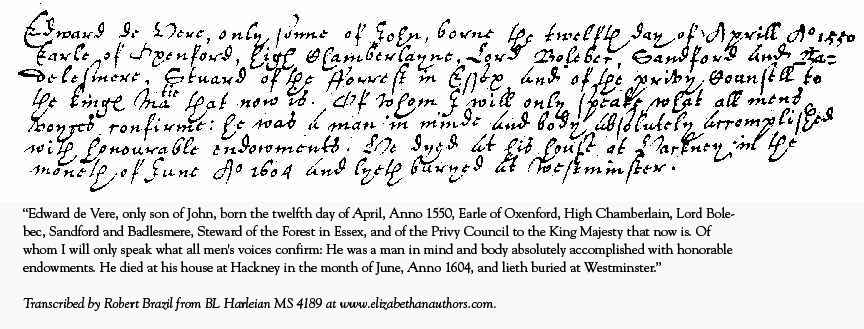 Edward de Vere, only sonne of John, borne the twelfth day of Aprill Aº 1550
Earle of Oxenford, high Chamberlayne, Lord Bolebec, Sandford and Ba=
delesmere, Steuard of the Forrest in Essex, and of the privy Counsell to
the kinges Matie that now is. Of whom I will only speake what all mens
voyces confirme: he was a man in minde and body absolutely accomplished
with honourable endowments. He dyed at his house at Hackney in the
moneth of June Aº 1604 and lyeth buryed at Westminster.
“Edward de Vere, only son of John, born the twelfth day of April, Anno 1550, Earle of Oxenford, High Chamberlain, Lord Bole-
bec, Sandford and Badlesmere, Steward of the Forest in Essex, and of the Privy Council to the King Majesty that now is. Of
whom I will only speak what all men's voices confirm: He was a man in mind and body absolutely accomplished with honorable
endowments. He died at his house at Hackney in the month of June, Anno 1604, and lieth buried at Westminster.”
Transcribed by Robert Brazil from BL Harleian MS 4189 at www.elizabethanauthors.com.